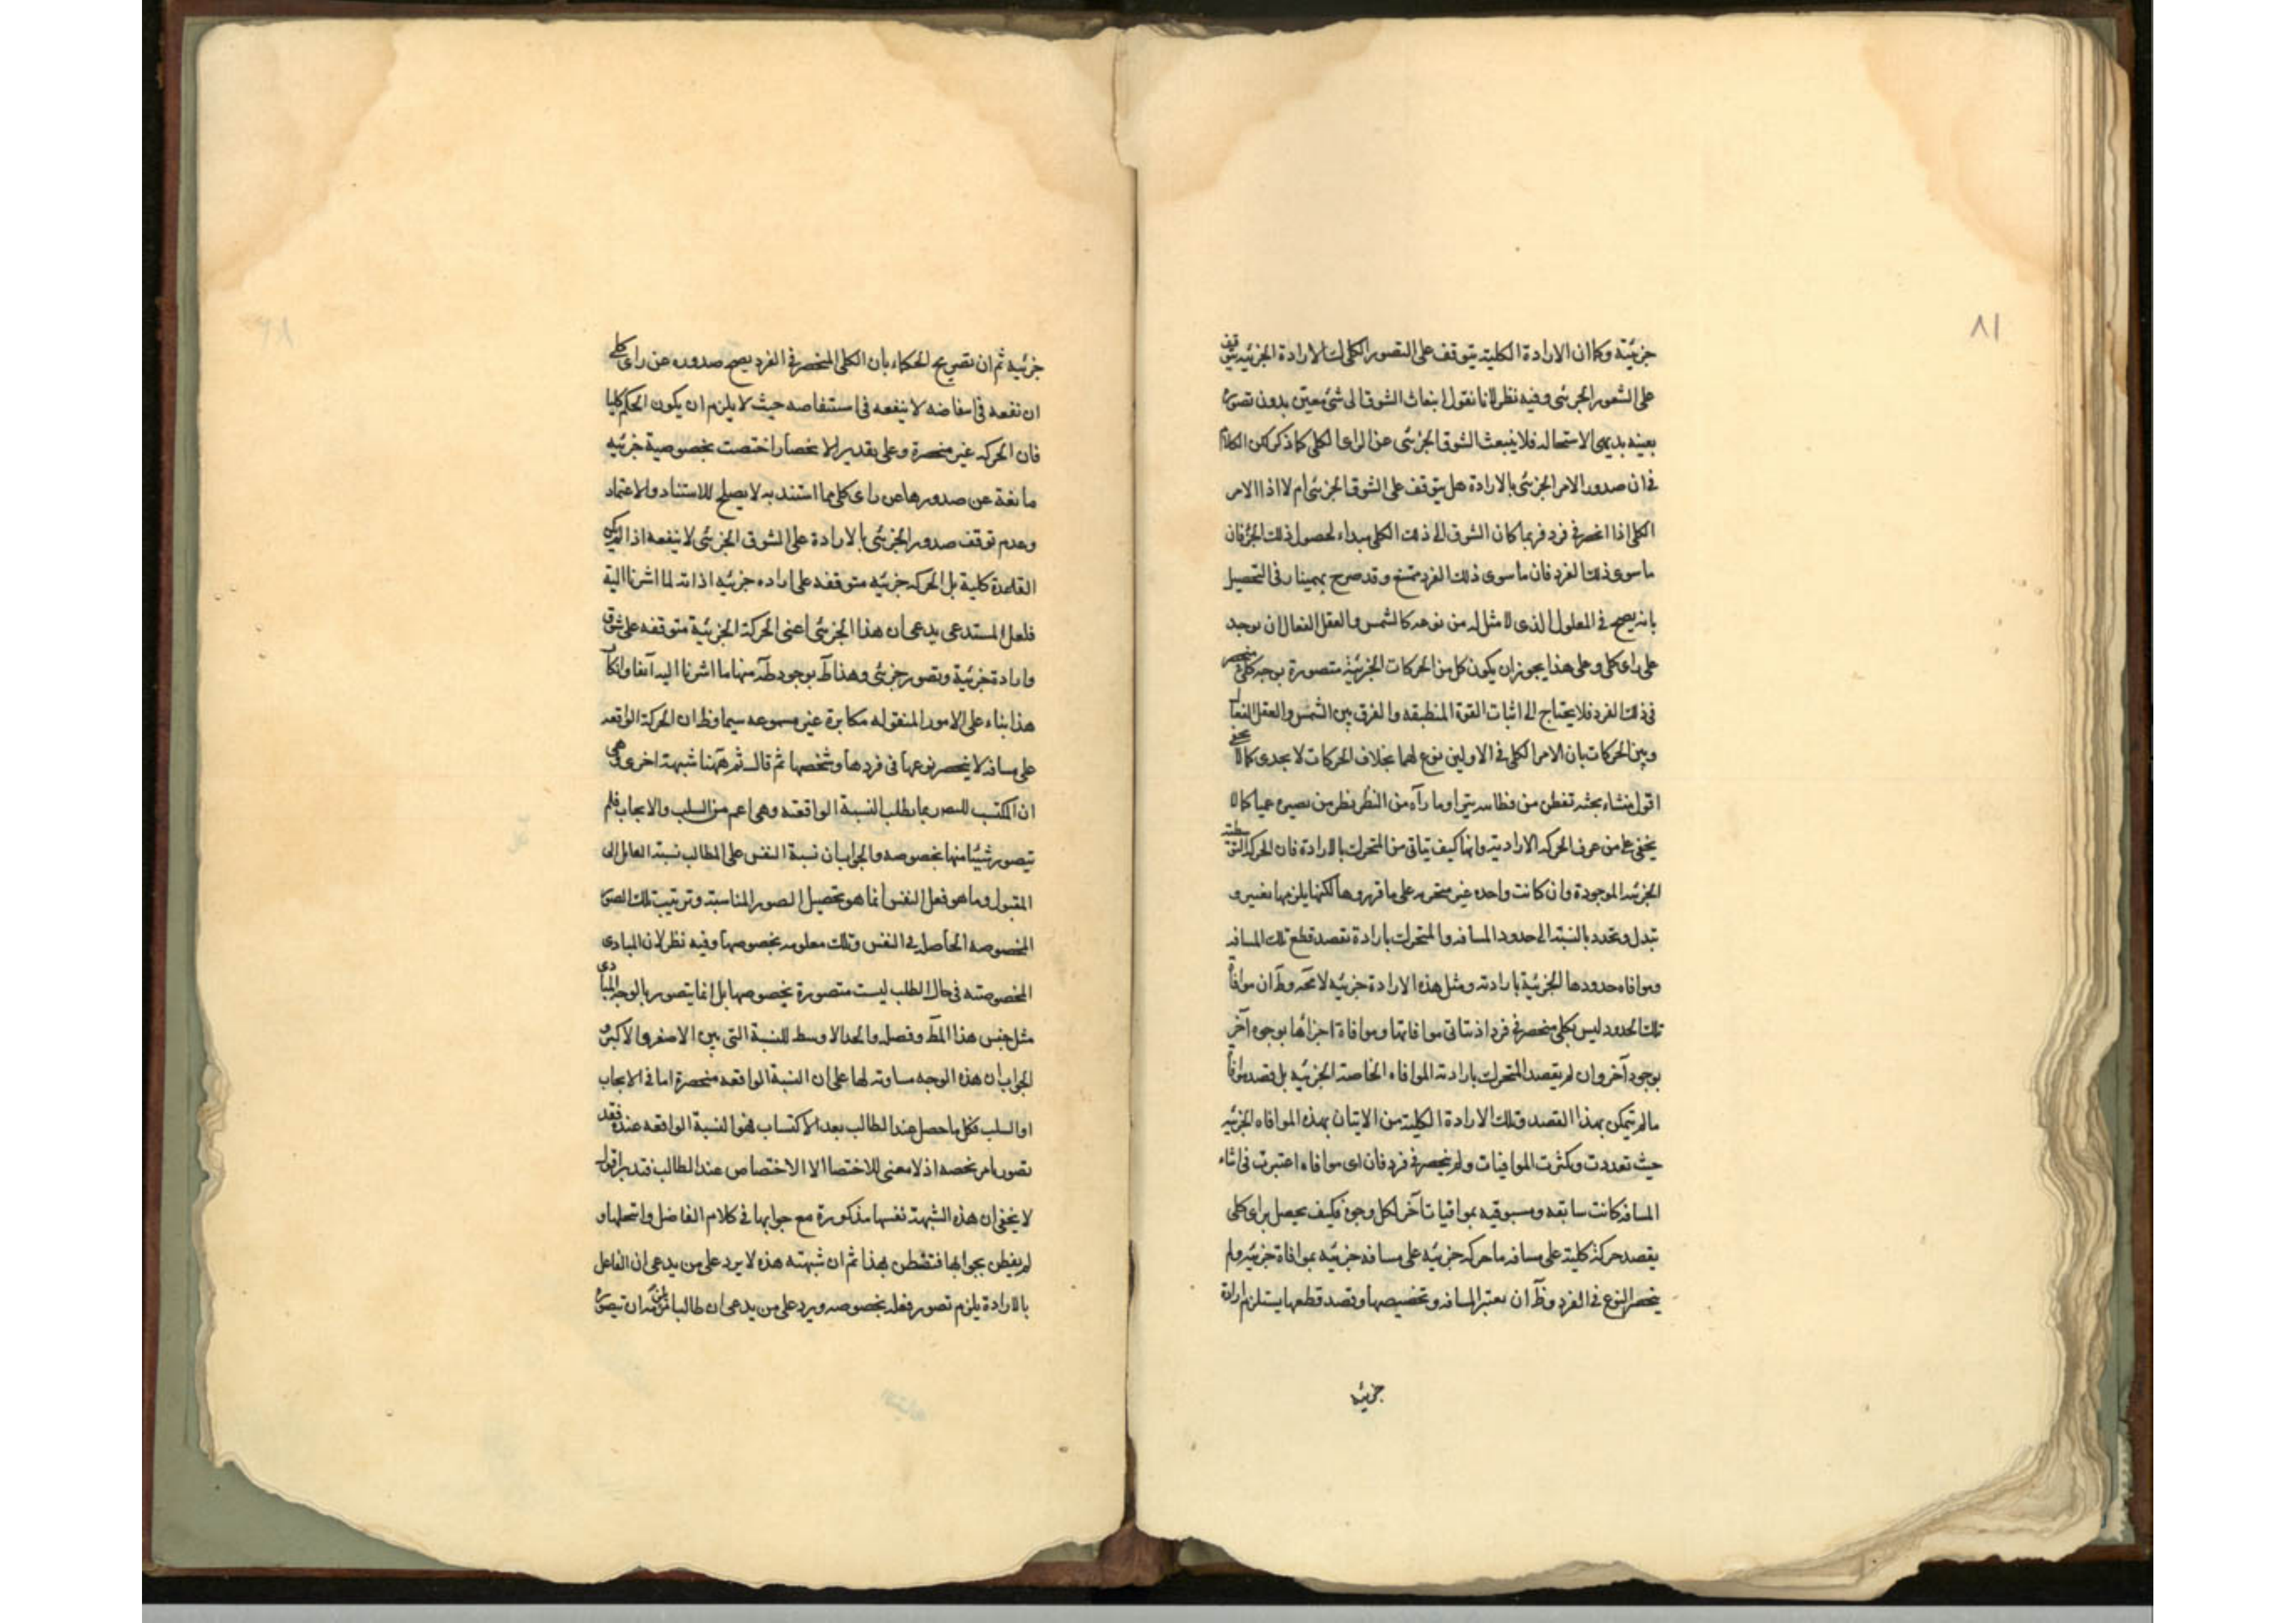 ٨١
جزئية وكما ان الارادة الكلية يتوقف على التصور الكلى كذلك الارادة الجزئية يتوقف
على الشعور الجزئى وفيه نظر لانا نقول انبعاث الشوق الى شئ معين بدون تصوره
بعينه بديهى الاستحالة فلا ينبعث الشوق الجزئى عن الراى الكلى كما ذكر لكن الكلام
فى ان صدور الامر الجزئى بالارادة هل يتوقف على الشوق الجزئى ام لا اذا الامر
الكلى اذا انحصر فى فرد فربما كان الشوق الى ذلك الكلى مبداء لحصول ذلك الجزء فان
ما سوى ذلك الفرد فان ما سوى ذلك الفرد ممتنع وقد صرح بهمنيار فى التحصيل
بانه يصح فى المعلول الذى لا مثل له من نوعه كالشمس والعقل الفعال ان يوجد
على راى كلى وعلى هذا يجوز ان يكون كل من الحركات الجزئية متصورة بوجه كلى منحصر
فى ذلك الفرد فلا يحتاج الى اثبات القوة المنطبقة والفرق بين الشمس والعقل الفعال
وبين الحركات بان الامر الكلى فى الاولين نوع لهما بخلاف الحركات لا يجدى كما لا يخفى
اقول منشاء بحثه تفطن من فطانته بترا وما رآه من النظر نظر من بصيرة عمياء كما لا
يخفى على من عرف الحركة الارادية وانها كيف يتاتى من المتحرك بالارادة فان الحركة التوسطية
الجزئية الموجودة وان كانت واحدة غير متغيرة على ما قرروها لكنها يلزمها تغير و
تبدل وتجدد بالنسبة الى حدود المسافة والمتحرك بارادة يقصد قطع تلك المسافة
وموافاة حدودها الجزئية بارادته ومثل هذه الارادة جزئية لا محة وظ ان موافاة
تلك الحدود ليس بكلى منحصر فى فرد اذ يتاتى موافاتها وموافاة اجزائها بوجوه آخر
بوجود آخر وان لم يقصد المتحرك بارادته الموافاة الخاصة الجزئية بل قصد موافاة
ما لم يتمكن بهذا القصد وتلك الارادة الكلية من الاتيان بهذه الموافاة الجزئية
حيث تعددت وكثرت الموافيات ولم ينحصر فى فرد فان اى موافاة اعتبرت فى اثناء
المسافة كانت سابقة ومسبوقية بموافيات آخر لكل وجوه فكيف يحصل براى كلى
يقصد حركة كلية على مسافة ما حركة جزئية على مسافة جزئية بموافاة جزئية ولم
ينحصر النوع فى الفرد وظ ان يعتبر المسافة وتخصيصها وقصد قطعها يستلزم ارادة
جزئية
جزئية ثم ان تصريح الحكماء بان الكلى المنحصر فى الفرد يصح صدوره عن راى كلى
ان نفعه فى لا ينفعه فى حيث لا يلزم ان يكون الحكم كليا
فان الحركة غير منحصرة وعلى تقدير الانحصار اختصت بخصوصية جزئية
مانعة عن صدورها عن راى كلى مما استند به لا يصلح للاستناد والاعتماد
وعدم توقف صدور الجزئى بالارادة على الشوق الجزئى لا ينفعه اذا لم يكن
القاعدة كلية بل الحركة جزئية متوقفة على اراده جزئية اذاته لما اشرنا اليه
فلعل المستدعى يدعى ان هذا الجزئى اعنى الحركة الجزئية متوقفة على شوق
وارادة جزئية وتصور جزئى وهذا ظ بوجود ظة منها ما اشرنا اليه آنفا وانكار
هذا بناء على الامور المنقوله مكابرة غير مسموعة سيما وظ ان الحركة الواقعة
على مسافة لا ينحصر نوعها فى فردها وشخصها ثم قال ثم ههنا شبهة اخرى وهى
ان المكتسب للتصور بما يطلب النسبة الواقعة وهى اعم من السلب والايجاب فلم
يتصور شيئا منها بخصوصه والجواب ان نسبة النفس على المطالب نسبة القابل الى
المقبول وما هو فعل النفس انما هو تحصيل الصور المناسبة وترتيب تلك الصور
المخصوصة الحاصل فى النفس وتلك معلومة بخصوصها وفيه نظر لان المبادى
المخصوصة فى حال الطلب ليست متصورة بخصوصها بل انما يتصور بالوجه المبادى
مثل جنس هذا المط وفصله والحد الاوسط للنسبة التى بين الاصغر والاكبر و
الجواب ان هذه الوجه مساوية لها على ان النسبة الواقعة منحصرة اما فى الايجاب
او السلب فكل ما حصل عند الطالب بعد الاكتساب فهو النسبة الواقعة عنده فقد
تصور بامر يخصه اذ لا معنى للاختصا الا الاختصاص عند الطالب فتدبر اقول
لا يخفى ان هذه الشبهة نفسها مذكورة مع جوابها فى كلام الفاضل وانتحلها و
لم يفطن بجوابها فتفطن بهذا ثم ان شبهته هذه لا يرد على من يدعى ان الفاعل
بالارادة يلزم تصور فعله بخصوصه ويرد على من يدعى ان طالبا ان يتصوره